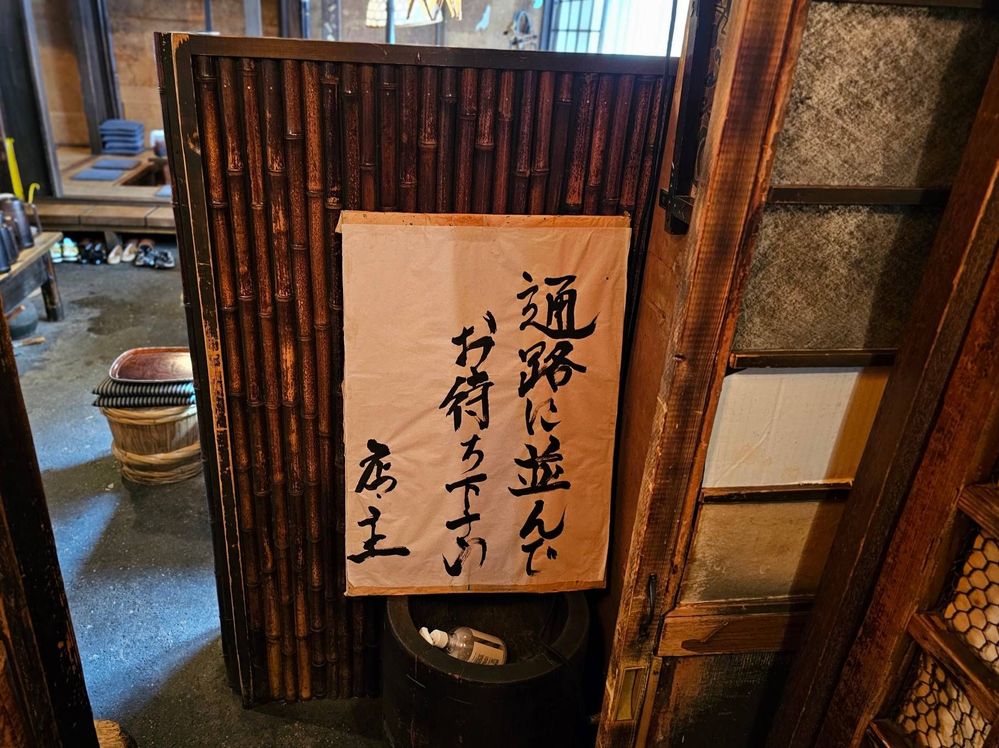 通路に並んで
お待ち下さい
店主